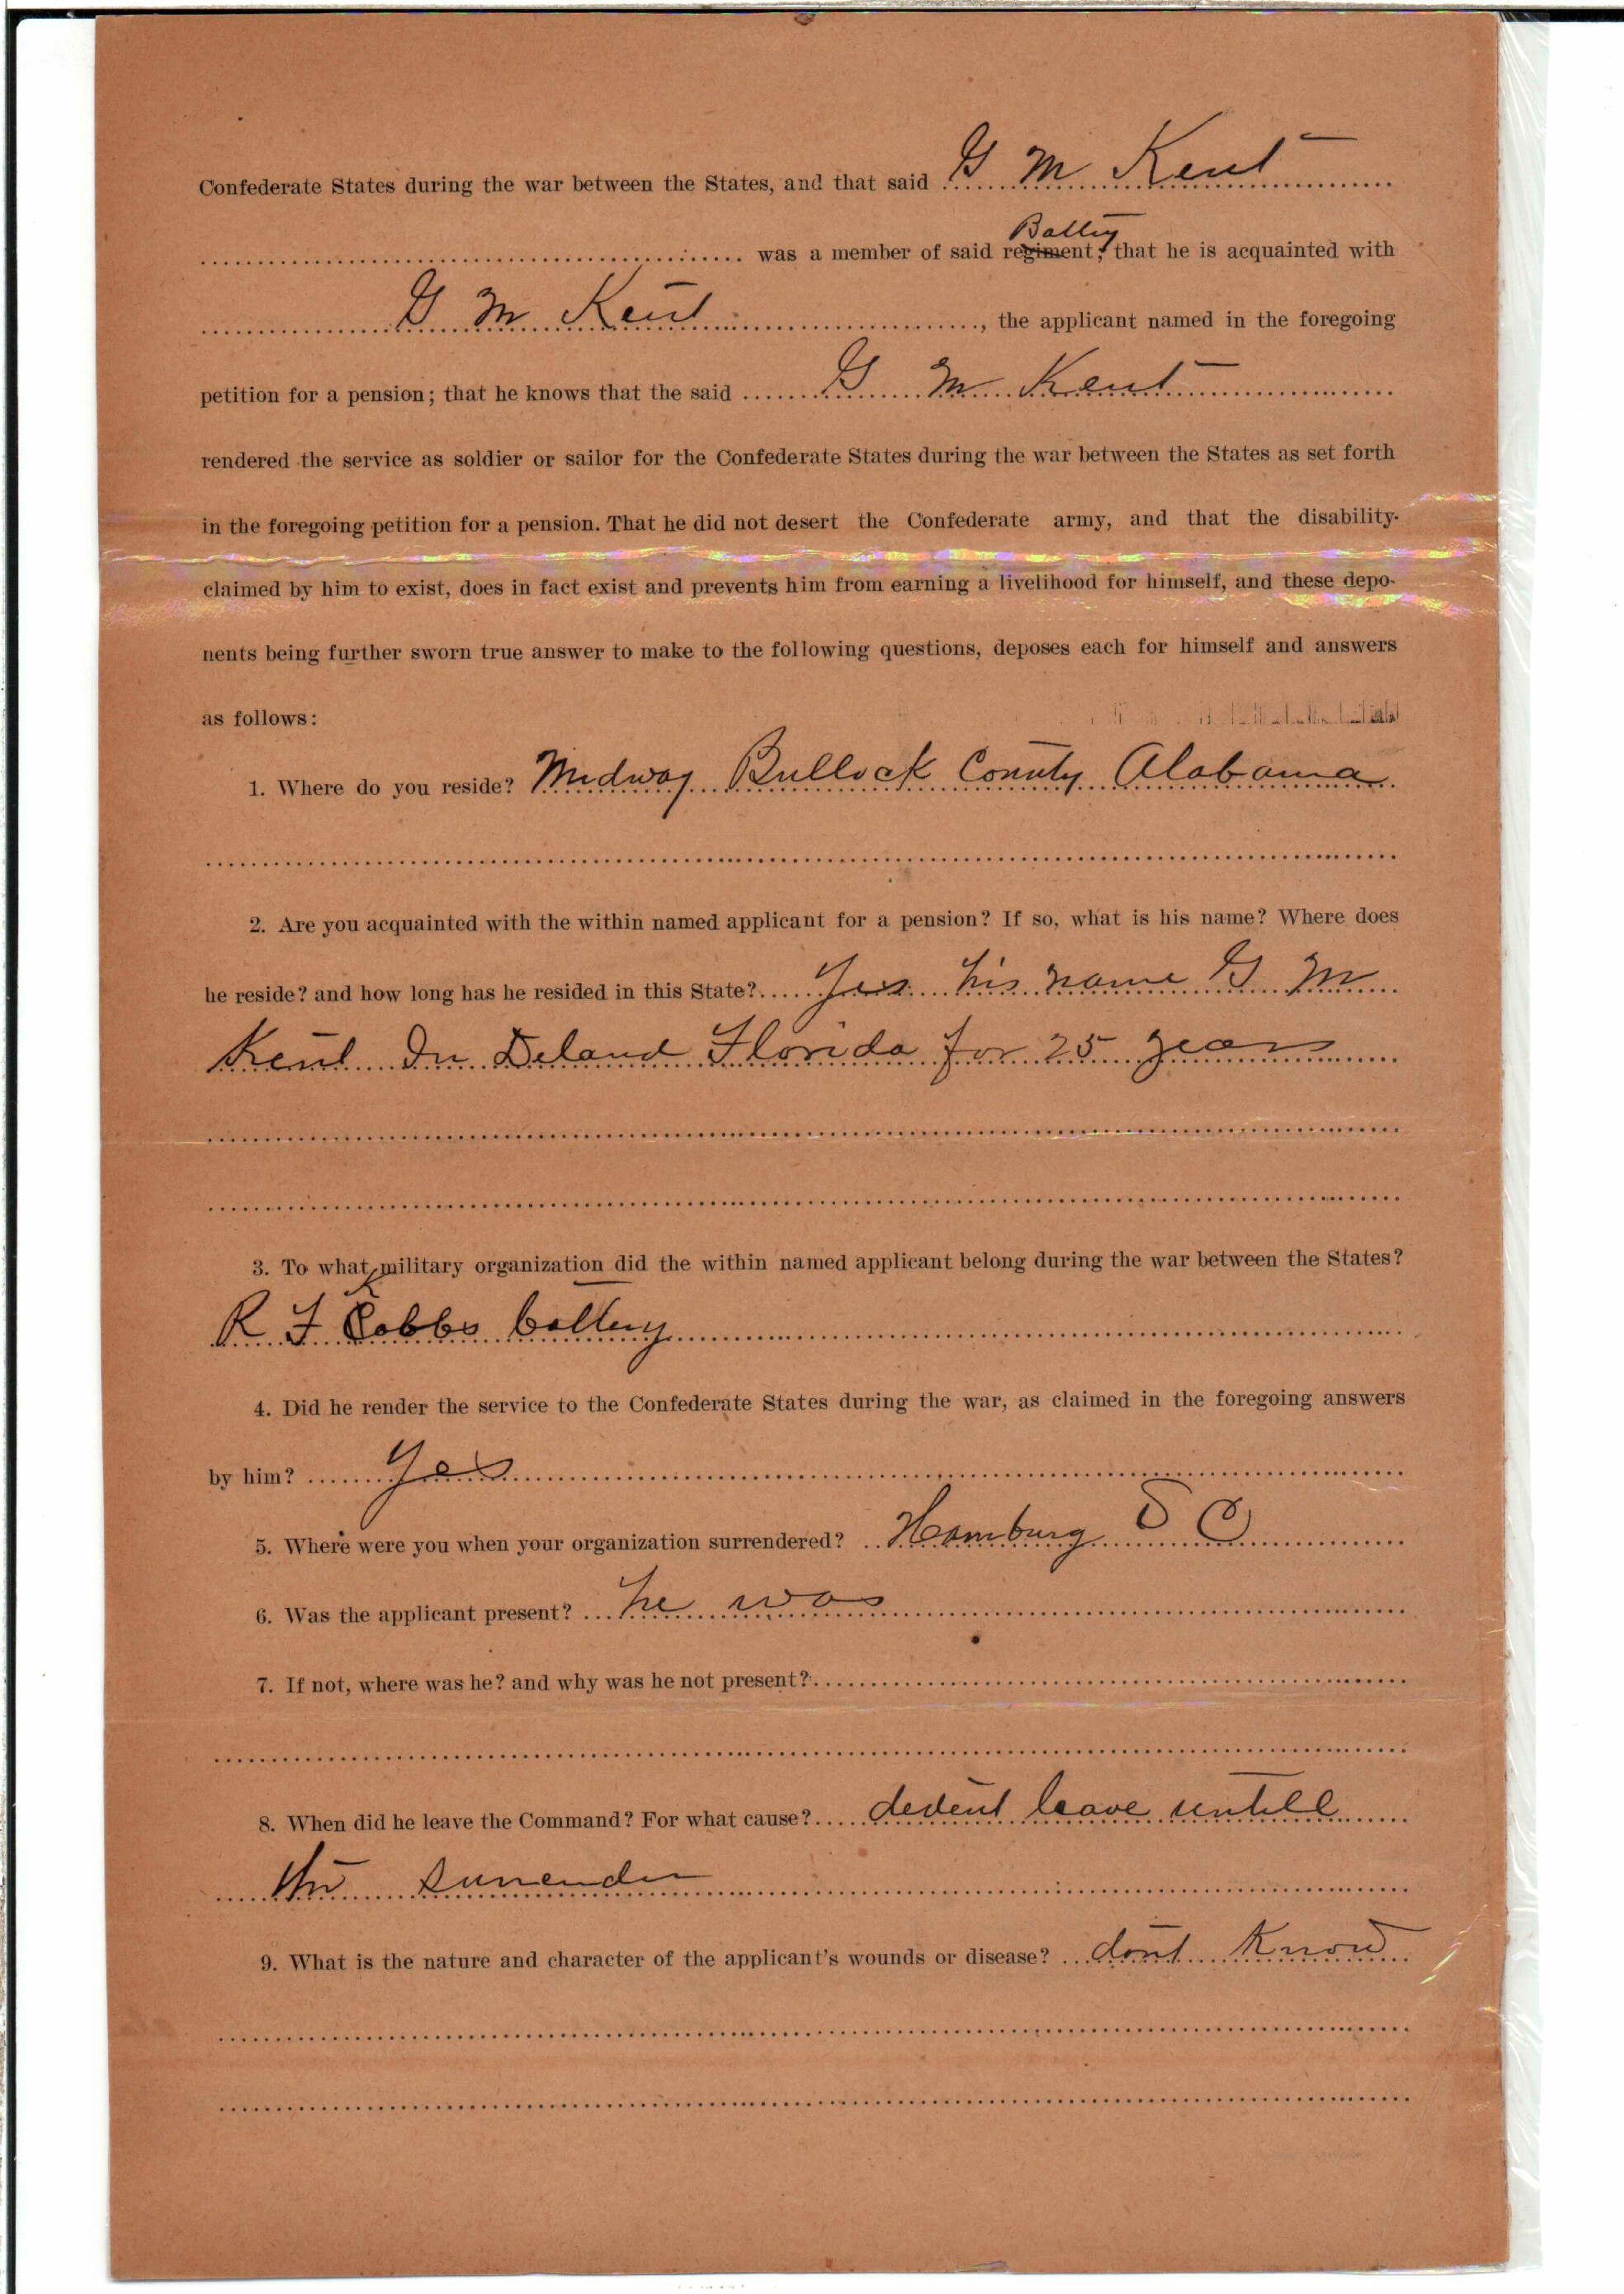 Confederate States during the war between the States, and that said G M Kent
Battry
was a member of said regiment; that he is acquainted with
G M Kent, the applicant named in the foregoing
petition for a pension; that he knows that the said G M Kent
rendered the service as soldier or sailor for the Confederate States during the war between the States as set forth
in the foregoing petition for a pension. That he did not desert the Confederate army, and that the disability
claimed by him to exist, does in fact exist and prevents him from earning a livelihood for himself, and these depo-
nents being further sworn true answer to make to the following questions, deposes each for himself and answers
as follows:
1. Where do you reside? Midway Bullock County Alabama
2. Are you acquainted with the within named applicant for a pension? If so, what is his name? Where does
he reside? and how long has he resided in this State? Yes his name G M
Kent In Deland Florida for 25 years
3. To what military organization did the within named applicant belong during the war between the States?
R F Kobbs battery
4. Did he render the service to the Confederate States during the war, as claimed in the foregoing answers
by him? Yes
5. Where were you when your organization surrendered? Hamburg S C
6. Was the applicant present? he was
7. If not, where was he? and why was he not present?
8. When did he leave the Command? For what cause? dedent leave untill
the surrender
9. What is the nature and character of the applicant's wounds or disease? dont Know